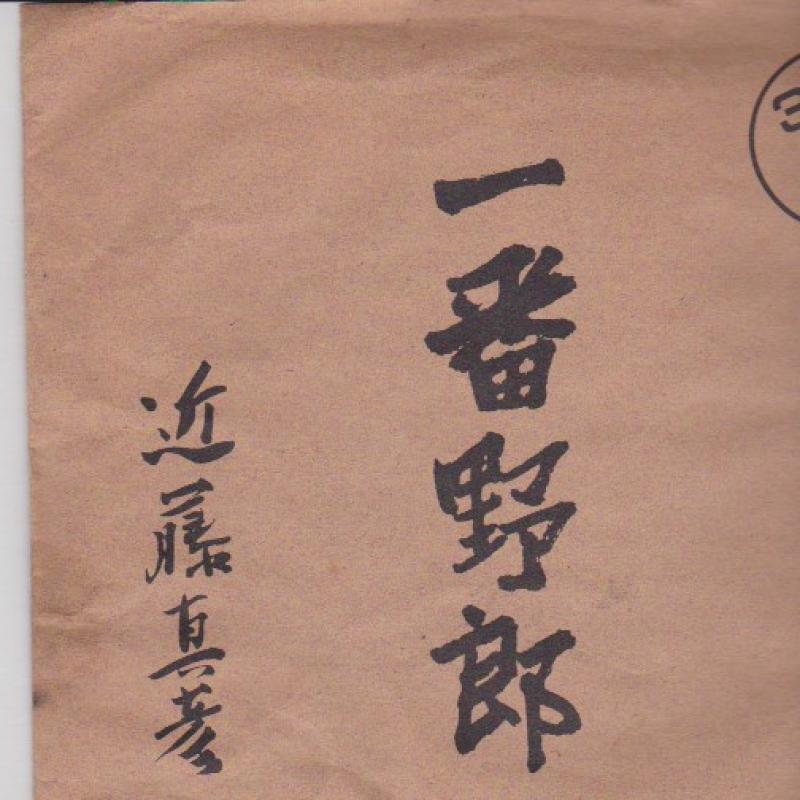 一番野郎
近藤真彦